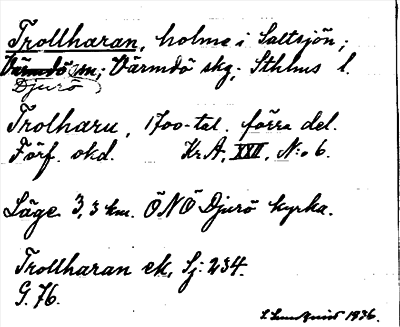 Trollharan, holme i Saltsjön;
Värmdö sn; Värmdö skg; Sthlms l.
Djurö
Trolharu, 1700-tal. förra del.
Förf. okd. Kr.A. XXII, N:o 6.
Läge 3,3 km. ÖNÖ Djurö kyrka.
Trollharan ek, Sj: 234.
G. 76.
S. Lundqvist 1936.